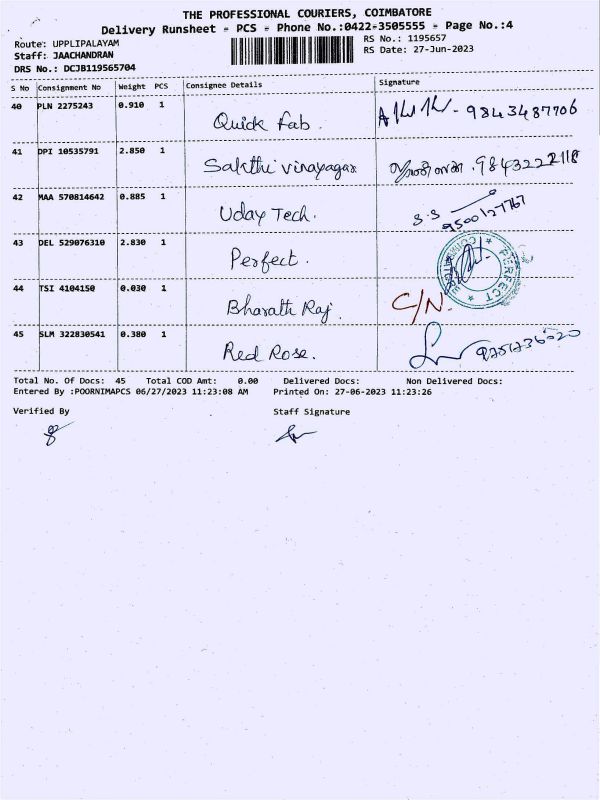 THE PROFESSIONAL COURIERS, COIMBATORE
Delivery Runsheet - PCS - Phone No.:0422-3505555 - Page No.:4
Route: UPPLIPALAYAM
RS No.: 1195657
Staff: JAACHANDRAN
RS Date: 27-Jun-2023
DRS No.: DCJB119565704
S No Consignment No Weight PCS Consignee Details Signature
40 PLN 2275243 0.910 1 Quick Fab. 9843487706
41 DPI 10535791 2.850 1 Sakthi vinayagar .9843222118
42 MAA 570814642 0.885 1 Uday Tech. S.S 9500127767
43 DEL 529076310 2.830 1 Perfect. PERFECT
44 TSI 4104150 0.030 1 Bharath Raj. C/N.
45 SLM 322830541 0.380 1 Red Rose.
Total No. Of Docs: 45 Total COD Amt: 0.00 Delivered Docs: Non Delivered Docs:
Entered By :POORNIMAPCS 06/27/2023 11:23:08 AM Printed On: 27-06-2023 11:23:26
Verified By Staff Signature